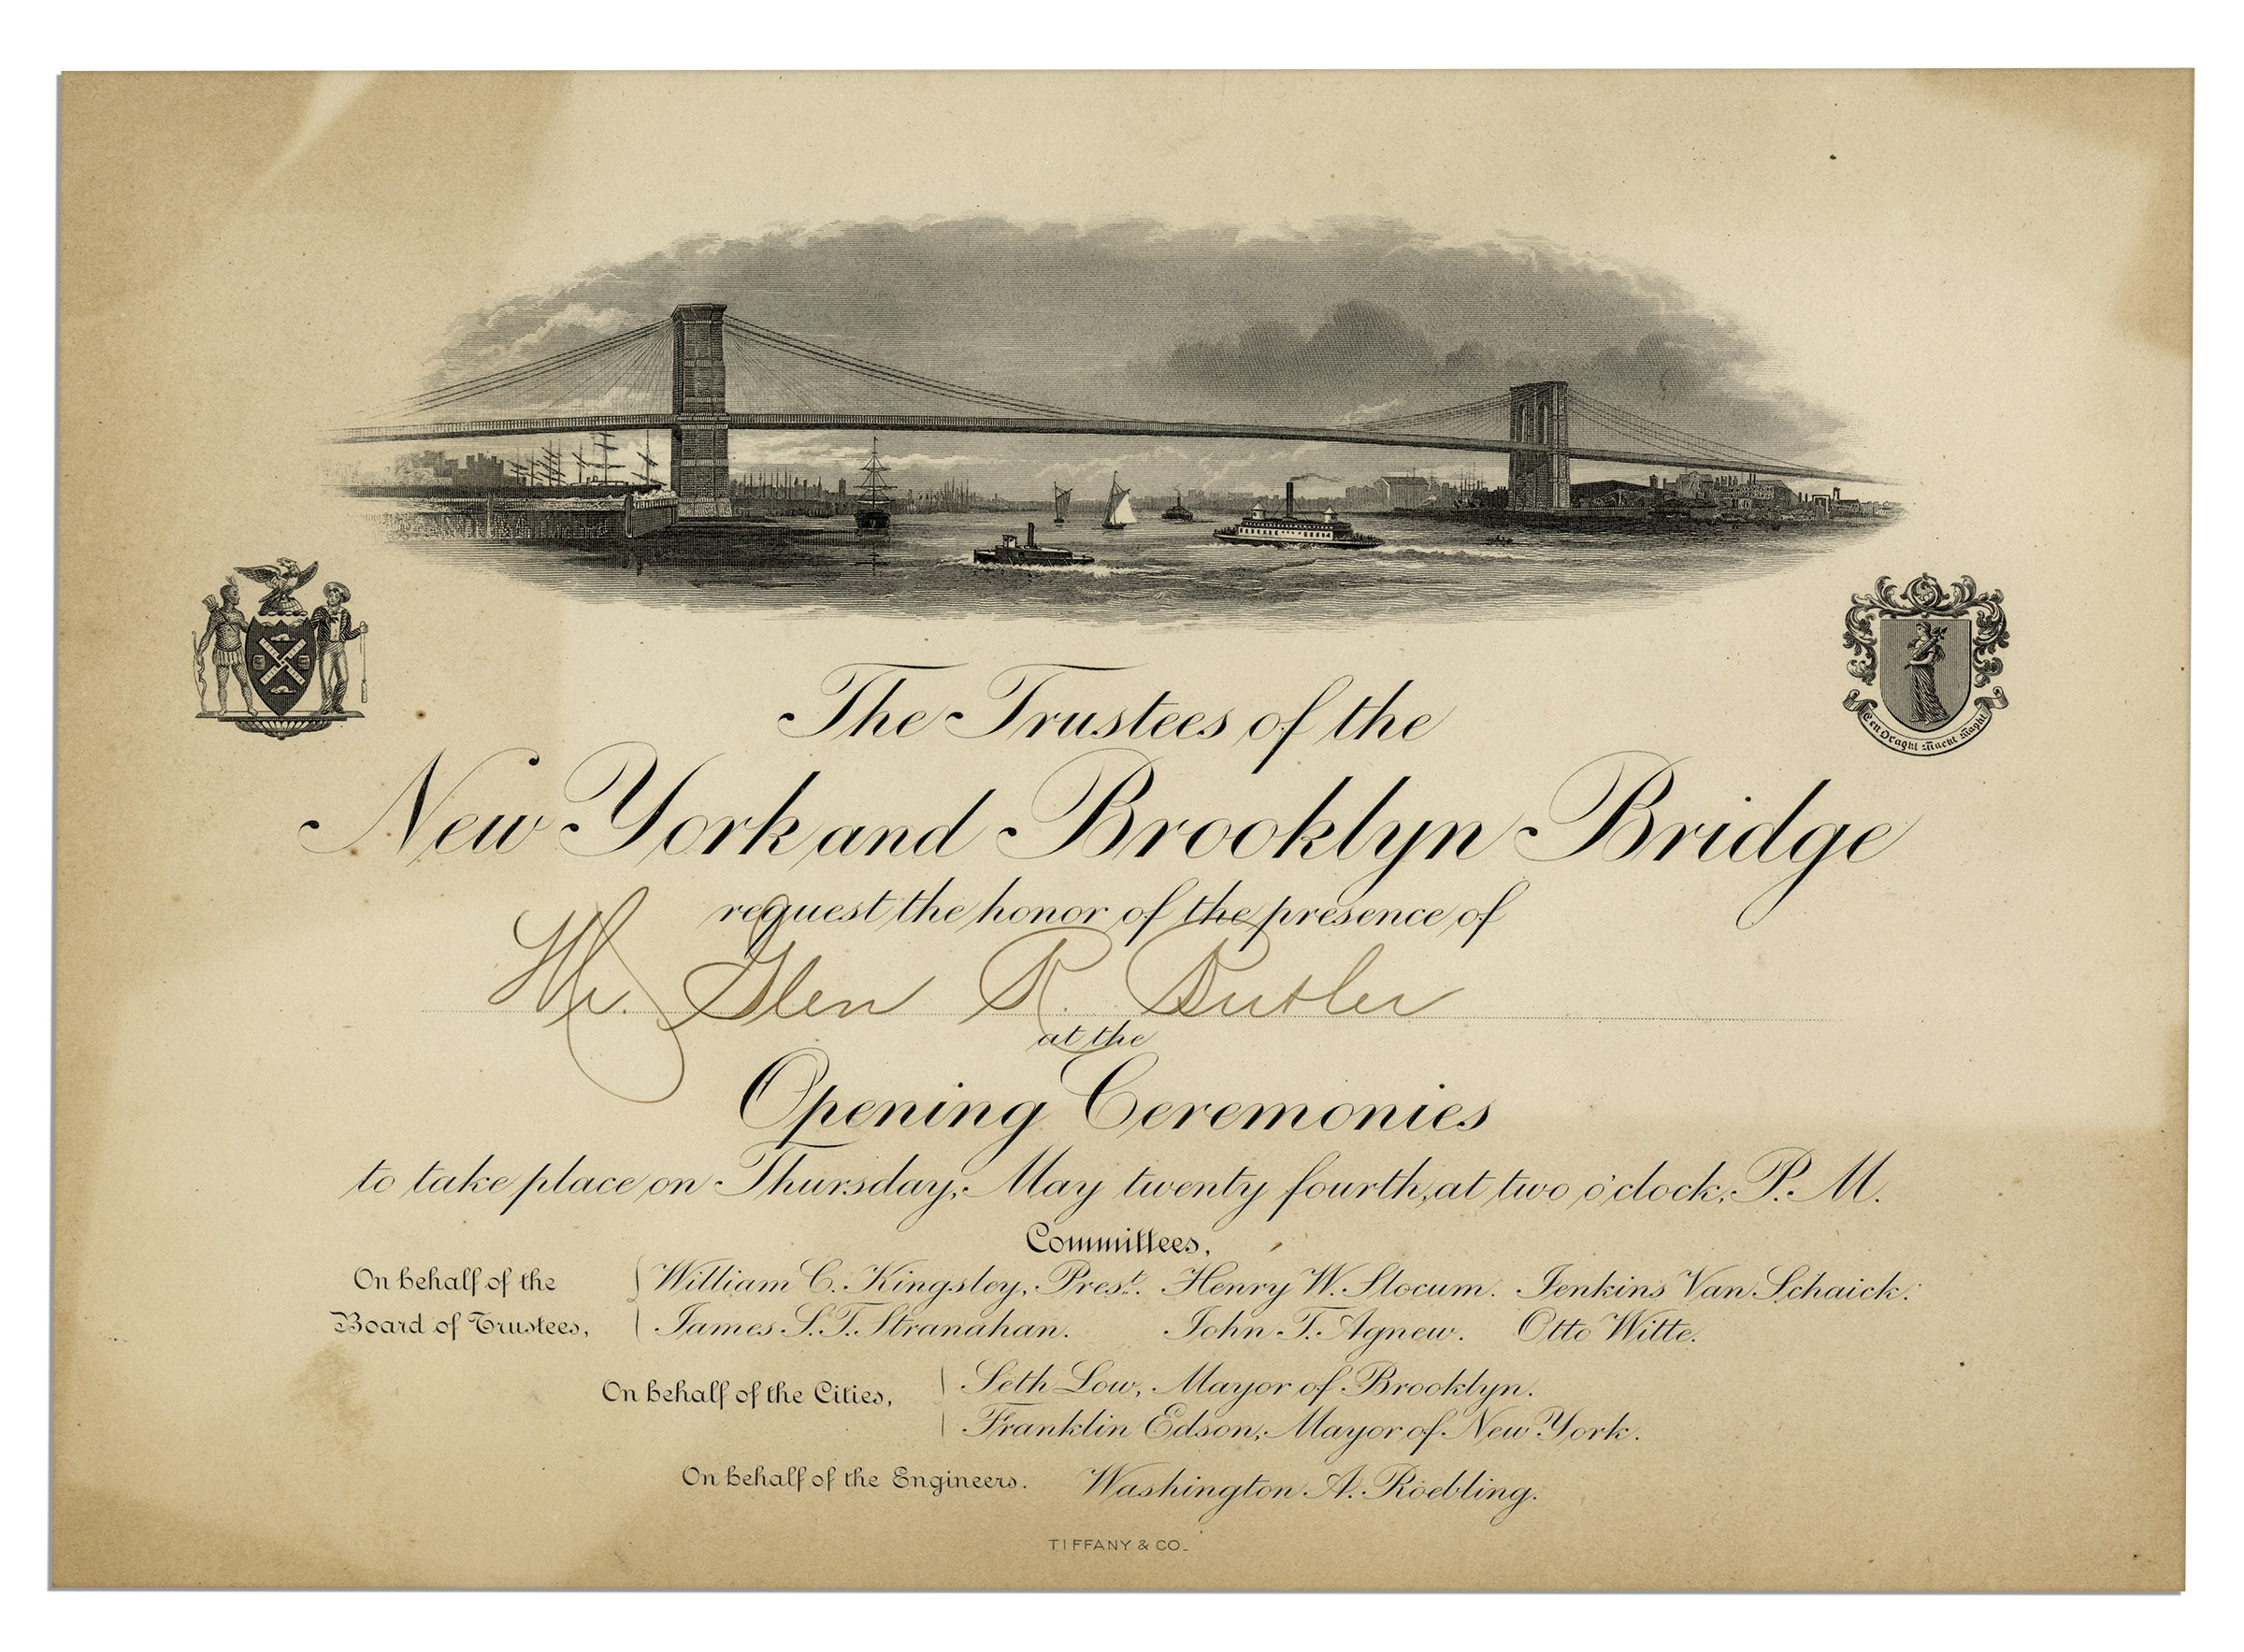 Een Draght Mackt Maght
The Trustees of the
New York and Brooklyn Bridge
request the honor of the presence of
Mr. Glen R. Butler
at the
Opening Ceremonies
to take place on Thursday, May twenty fourth, at two o'clock, P. M.
Committees,
On behalf of the Board of Trustees,
William C. Kingsley, Prest. Henry W. Slocum. Jenkins Van Schaick.
James S. T. Stranahan. John T. Agnew. Otto Witte.
On behalf of the Cities,
Seth Low, Mayor of Brooklyn.
Franklin Edson, Mayor of New York.
On behalf of the Engineers. Washington A. Roebling.
TIFFANY & CO.